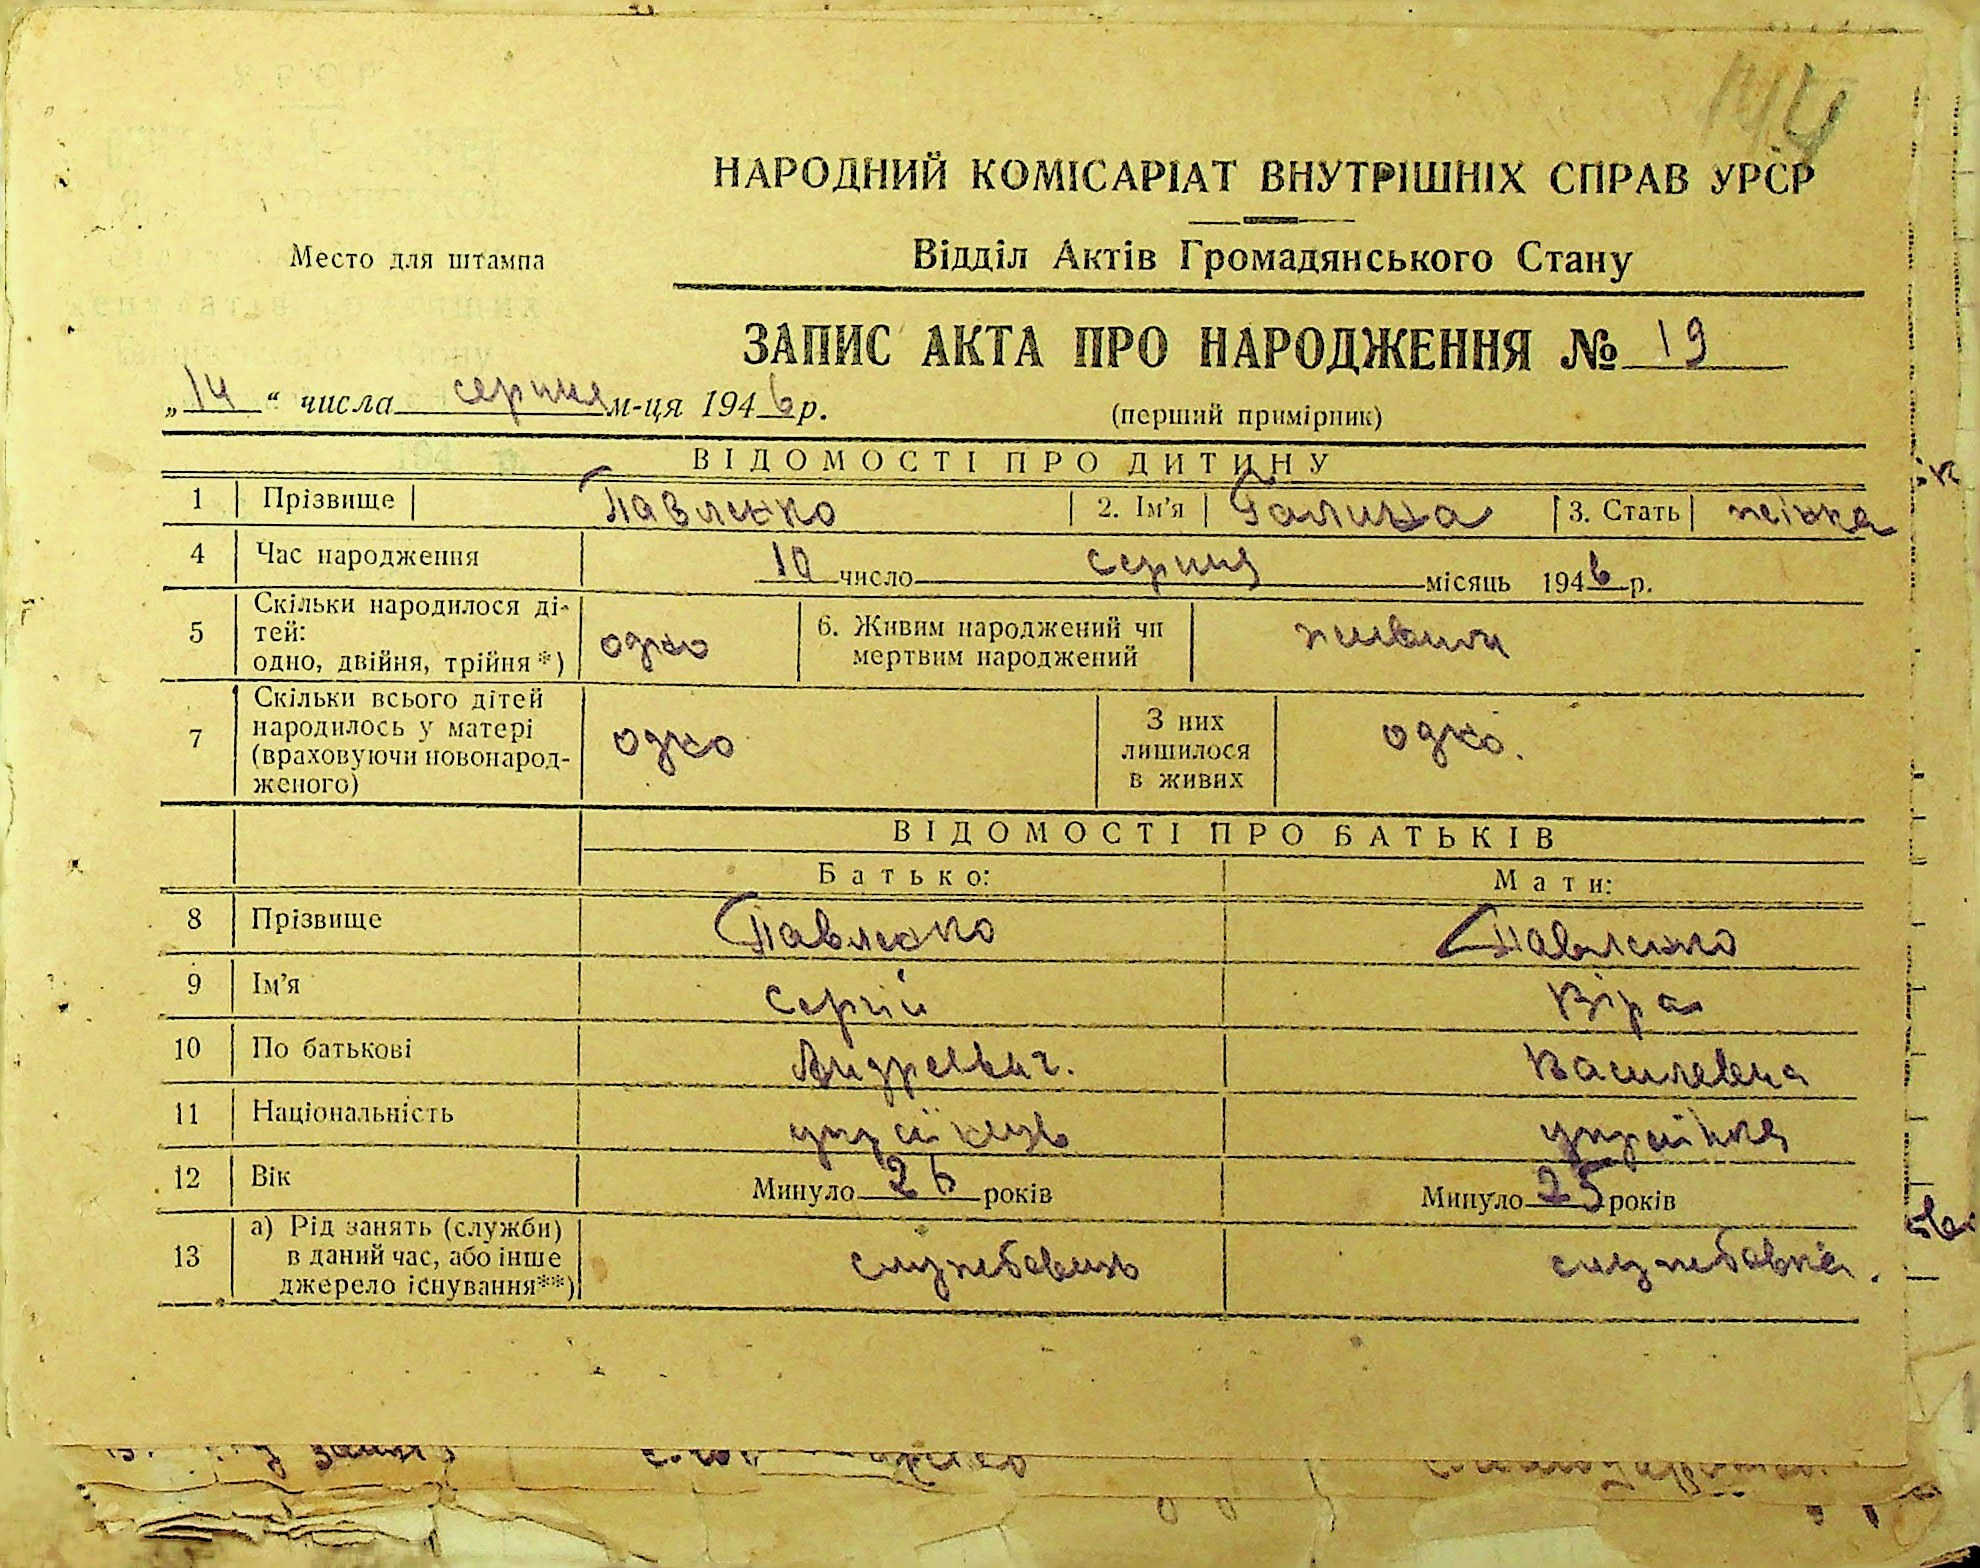 144
НАРОДНИЙ КОМІСАРІАТ ВНУТРІШНІХ СПРАВ УРСР
Место для штампа
Відділ Актів Громадянського Стану
ЗАПИС АКТА ПРО НАРОДЖЕННЯ № 19
„14“ числа серпня м-ця 1946 р.
(перший примірник)
ВІДОМОСТІ ПРО ДИТИНУ
1 Прізвище Павленко 2. Ім'я Галина 3. Стать жінка
4 Час народження 10 число серпня місяць 1946 р.
5 Скільки народилося ді-
тей:
одно, двійня, трійня*) одно
6. Живим народжений чи
мертвим народжений живим
7 Скільки всього дітей
народилось у матері
(враховуючи новонарод-
женого) одно
З них
лишилося
в живих одно.
ВІДОМОСТІ ПРО БАТЬКІВ
Батько: Мати:
8 Прізвище Павленко Павленко
9 Ім'я Сергій Віра
10 По батькові Андреевич. Василевна
11 Національність українець українка
12 Вік Минуло 26 років Минуло 25 років
13 а) Рід занять (служби)
в даний час, або інше
джерело існування**) службовець службовка.